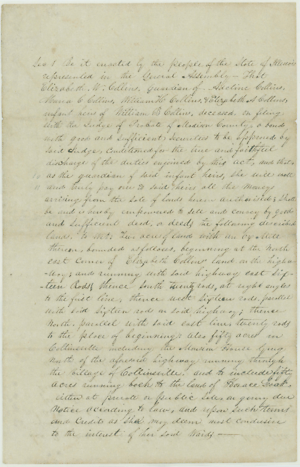 Sec 1 Be it enacted by the people of the State of Illinois
represented in the General Assembly - That
Elizabeth W. Collins, guardian of Adaline Collins,
Collins, William Collins & Elizabeth A Collins,
infant heirs of William B Collins, deceased, on filing
with the Judge of Probate of Madison County, a bond
with good and sufficient Securities to be approved by
said Judge, conditioned for the true and faithful
discharge of the duties enjoined by this act, and that
as the guardian of said infant heirs, she will well
and truly pay over to said heirs all the moneys
arising from the sale of lands herein authorized, Shall
be and is hereby empowered to sell and convey by good
and sufficient deed, or deeds, the following described
land, to wit: Two acres of land with an
thereon, bounded as follows, beginning at the North
east Corner of Elizabeth Collins' land on the high-
way; and running with said highway east Six-
teen Rods; thence South twenty rods, at right angles
to the first line, thence west Sixteen rods, parallel
with said Sixteen rods on said highway; thence
North parallel with said east line, twenty rods
to the place of beginning; also fifty acres in
Collinsville
north of the aforesaid highway running through
the village of Collinsville, and to include fifty
acres running back to the land of Horace
either at private or public sale, on giving due
Notice according to law, and upon such terms
and Credits as She may deem most conducive
to the interest of her said Wards